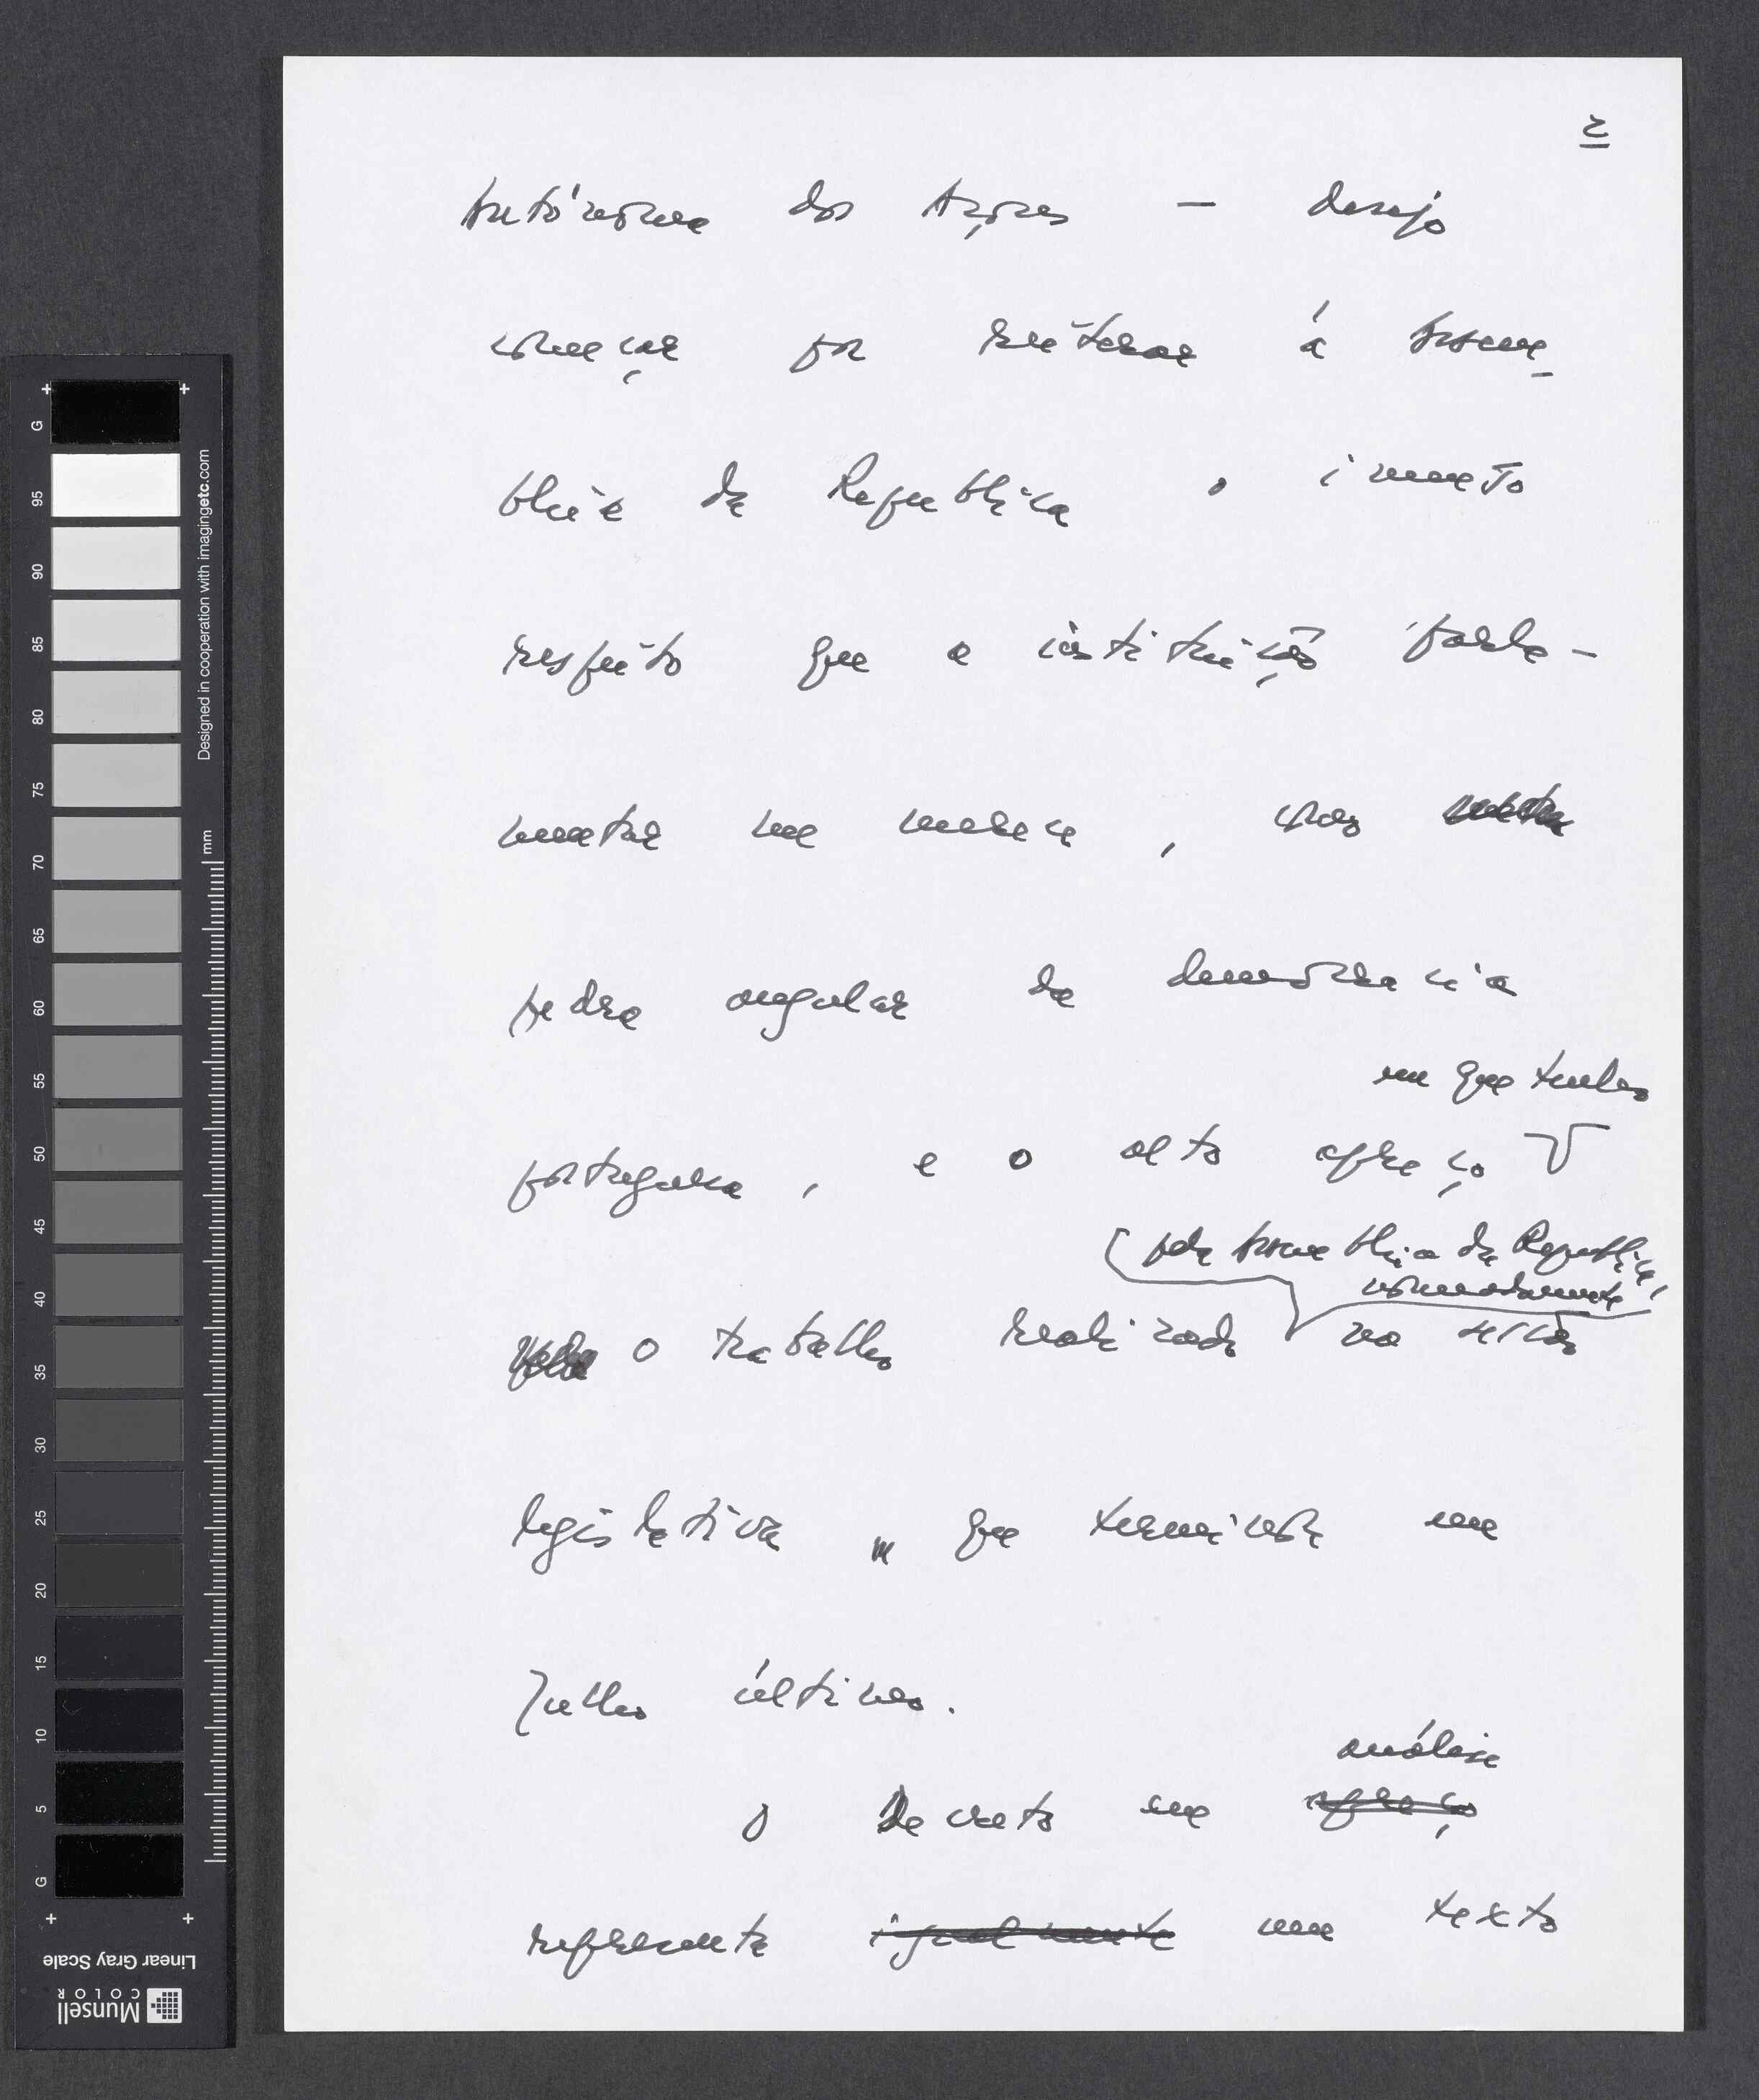 2
Autónoma dos Açores — desejo
começar por reiterar à Assem-
bleia da República o imenso
respeito que a instituição parla-
mentar me merece, como
pedra angular da democracia
em que tenho
portuguesa, e o alto apreço
pela Assembleia da República,
nomeadamente
o trabalho realizado na sessão
legislativa que terminou em
Julho último.
análise
O Decreto em apreço
representa igualmente um texto
Designed in cooperation with imagingetc.com
mm
G
95
90
85
80
75
70
65
60
55
50
45
40
35
30
25
20
15
10
5
G
Linear Gray Scale
Munsell
COLOR